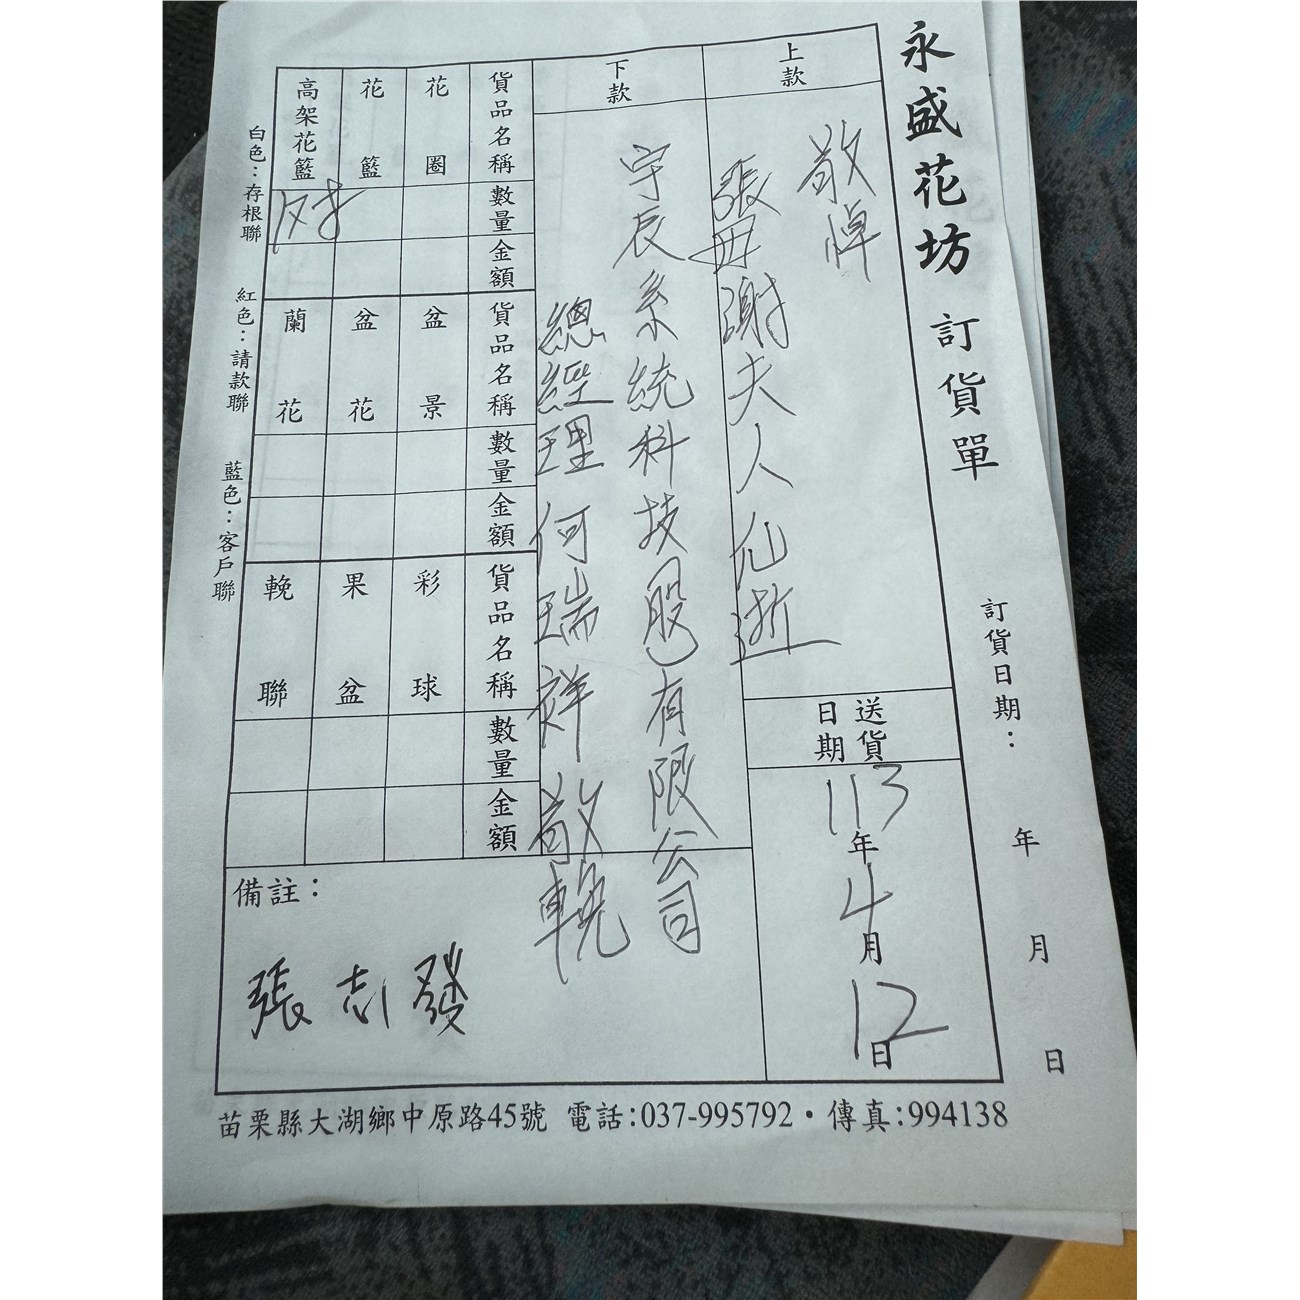 永盛花坊 訂貨單
訂貨日期： 年 月 日
上款
敬悼
張母謝夫人仙逝
送貨日期
113年4月12日
下款
宇辰系統科技股有限公司
總經理 何瑞祥 敬輓
貨品名稱 數量 金額 貨品名稱 數量 金額 貨品名稱 數量 金額
花圈 盆景 彩球
花籃 盆花 果盆
高架花籃 蘭花 輓聯
備註：
張志發
白色：存根聯 紅色：請款聯 藍色：客戶聯
苗栗縣大湖鄉中原路45號 電話:037-995792・傳真:994138